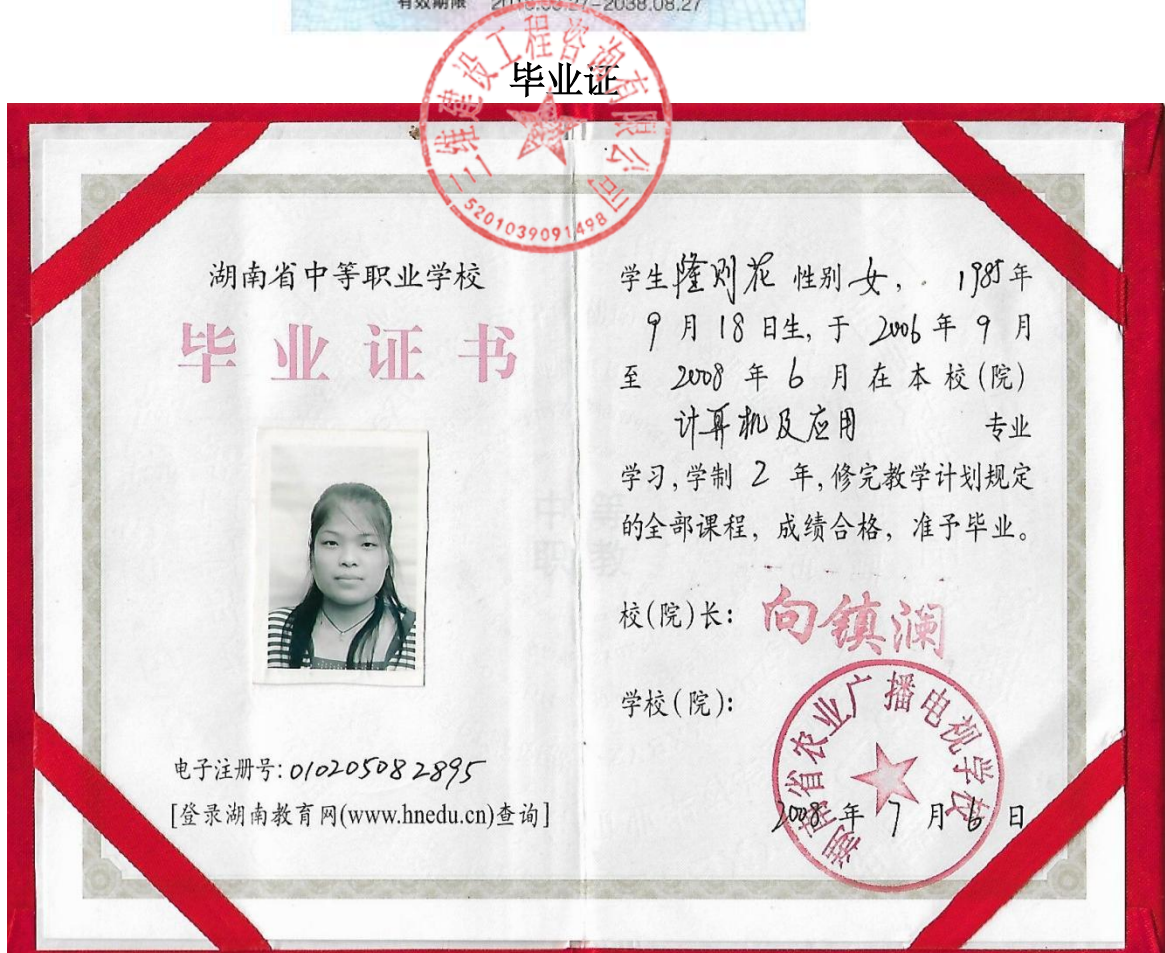 有效期限 2018.08.27-2038.08.27
毕业证
三维建设工程咨询有限公司
5201039091498
湖南省中等职业学校
毕业证书
电子注册号:010205082895
[登录湖南教育网(www.hnedu.cn)查询]
中等
职教
学生隆则花 性别女, . 1985年
9月18日生,于2006年9月
至 2008年6月在本校(院)
计算机及应用 专业
学习,学制 2 年,修完教学计划规定
的全部课程,成绩合格,准予毕业。
校(院)长: 向镇澜
学校(院):
湖南省农业广播电视学校
2008年7月 日